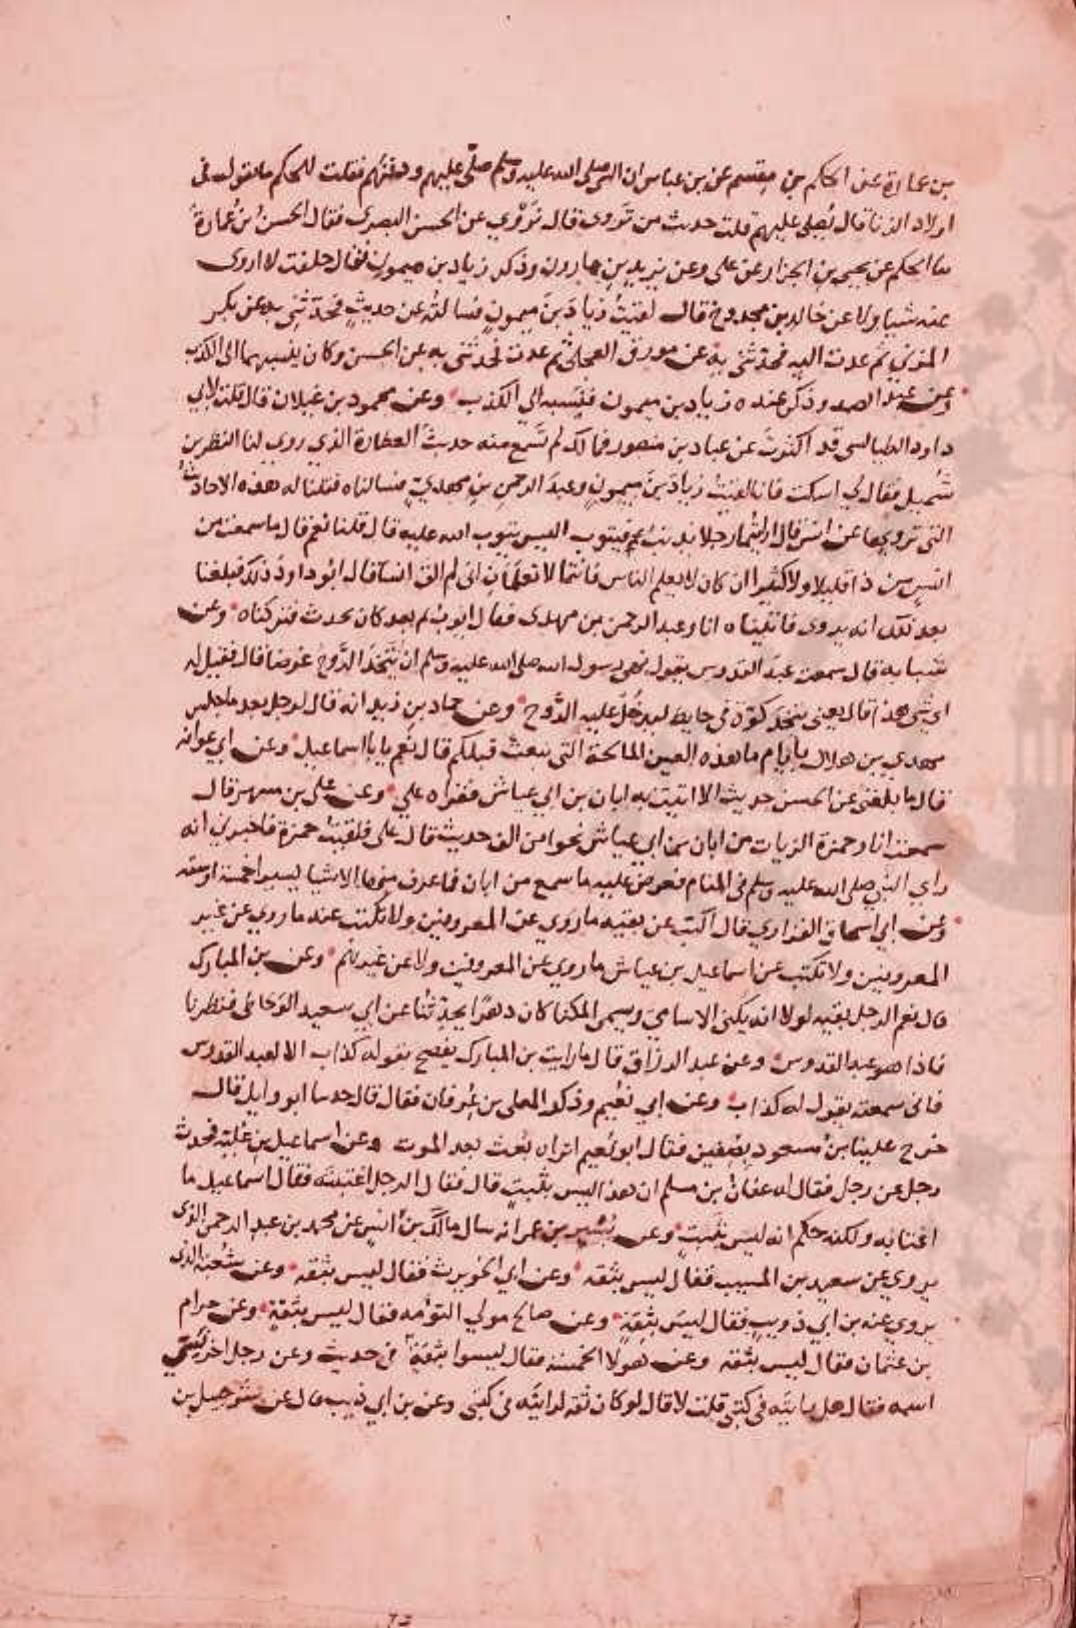 بن عمارة عن الحكم عن مقسم عن بن عباس ان النبي صلى الله عليه وسلم صلى عليهم ودفنهم فقلت للحكم ما تقول في
اولاد الزنا قال يُصلى عليهم قلت حديث من تروى قال نروي عن الحسن البصرى فقال الحسن بن عُمارة
ثنا الحكم عن يحيى بن الجزار عن على وعن يزيد بن هارون وذكر زياد بن ميمون فقال حلفت لا اروى
عنه شيا ولا عن خالد بن مجدوح قال لقيتُ زيادَ بنَ ميمونٍ فسالته عن حديثٍ فحدثني به عن بكر
المزني ثم عدت اليه فحدثنى به عن مورق العجلى ثم عدت فحدثنى به عن الحسن وكان ينسبهما الى الكذب
وعن عبد الصمد وذكر عنده زياد بن ميمون فنسبه الي الكذب وعن محمود بن غيلان قال قلت لابي
داود الطيالسى قد اكثرتَ عن عباد بن منصور فمالك لم تسمع منه حديثَ العطارة الذي روى لنا النضر بن
شُميل فقال لي اسكت فانا لقيتُ زيادَ بنَ ميمونٍ وعبدَ الرحمن بن مهديّ فسالناه فقلنا له هذه الاحاديثُ
التى ترويها عن انس قال ارايتما رجلا يذنبُ فيتوب اليس يتوب الله عليه قال قلنا نعم قال ما سمعت من
انسٍ من ذا قليلا ولا كثيرا ان كان لا يعلم الناس فانتما لا تعلمان انى لم الق انسا قال ابو داود فبلغنا
بعد ذلك انه يروى فاتيناه انا وعبد الرحمن بن مهدى فقال اتوب ثم بعد كان يحدث فتركناه وعن
شبابه قال سمعت عبد القدوس يقول نهى رسول الله صلى الله عليه وسلم ان يتخذ الرَّوح عرضا قال فقيل له
اي شى هذا قال يعني يتخذ كوة في حايط ليدخُل عليه الرَّوح وعن حماد بن زيد انه قال لرجل بعد ما جلس
مهدي بن هلال بايام ما هذه العين المالحة التى نبعث قبلكم قال نعم يا با اسماعيل وعن ابي عوانه
قال ما بلغنى عن الحسن حديث الا اتيت به ابان بن ابي عياش فقراه علي وعن على بن مسهر قال
سمعت انا وحمزة الزيات من ابان بن ابي عياش نحوا من الف حديث قال على فلقيتُ حمزة فاخبرني انه
راي النبي صلى الله عليه وسلم فى المنام فعرض عليه ما سمع من ابان فما عرف منها الا شيا يسيرا خمسة او سته
وعن ابي اسحاق الفزاري قال اكتب عن بقيه ما روي عن المعروفين ولا تكتب عنه ما روي عن غير
المعروفين ولا تكتب عن اسماعيل بن عياش ما روي عن المعروفين ولا عن غيرهم وعن بن المبارك
قال نعم الرجل بقيه لولا انه يكنى الاسامي ويسمى المكنا كان دهرًا يحدِّثُنا عن ابي سعيد الوحاظى فنظرنا
فاذا هو عبد القدوس وعن عبد الرزاق قال ما رايت بن المبارك يفصح بقوله كذاب الا لعبد القدوس
فانى سمعته يقول له كذاب وعن ابي نعيم وذكر المعلى بن عُرفان فقال قال حدثنا ابو وايل قال
خرج علينا بنُ مسعود بصفين فقال ابو نُعيم اتراه بعث بعد الموت وعن اسماعيل بن عُليَّة فحدث
رجل عن رجل فقال له عفان بن مسلم ان هذا ليس بثبتٍ قال فقال الرجل اغتبته فقال اسماعيل ما
اغتابه ولكنه حكم انه ليس بثبتٍ وعن بشر بن عمر انه سال مالكَ بنَ انسٍ عن محمد بن عبد الرحمن الذى
يروي عن سعيد بن المسيب فقال ليس بثقه وعن ابي الحويرث فقال ليس بثقه وعن شعبة الذى
يروي عنه بن ابي ذويبٍ فقال ليس بثقةٍ وعن صالح مولي التوءمه فقال ليس بثقةٍ وعن حرام
بن عثمان فقال ليس بثقه وعن هولا الخمسه فقال ليسوا بثقةٍ في حديث وعن رجل اخر نسيتُ
اسمه فقال هل رايته في كتبى قلت لا قال لو كان ثقه لرايته في كتبى وعن بن ابي ذيب قال عن شرحبيل بن